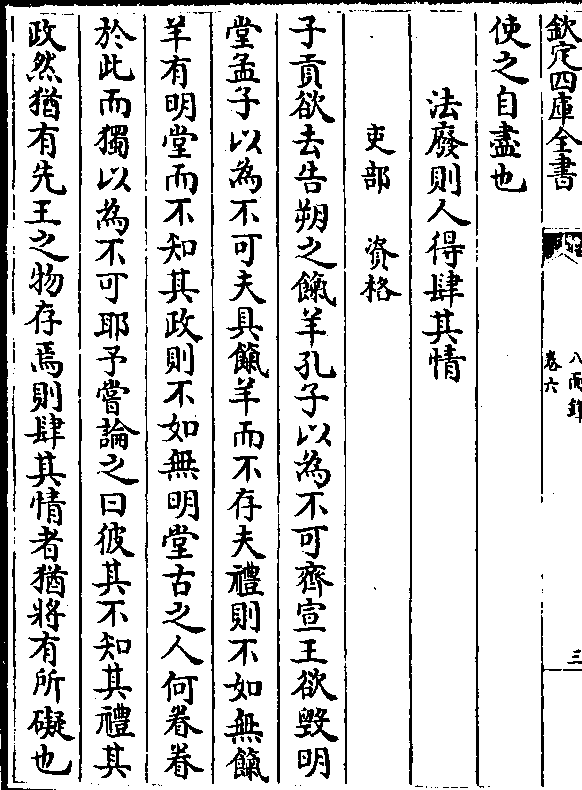 欽定四庫全書
八面鋒
卷六
三
使之自盡也
法廢則人得肆其情
吏部 資格
子貢欲去告朔之餼羊孔子以為不可齊宣王欲毀明
堂孟子以為不可夫具餼羊而不存夫禮則不如無餼
羊有明堂而不知其政則不如無明堂古之人何眷眷
於此而獨以為不可耶予嘗論之曰彼其不知其禮其
政然猶有先王之物存焉則肆其情者猶將有所礙也